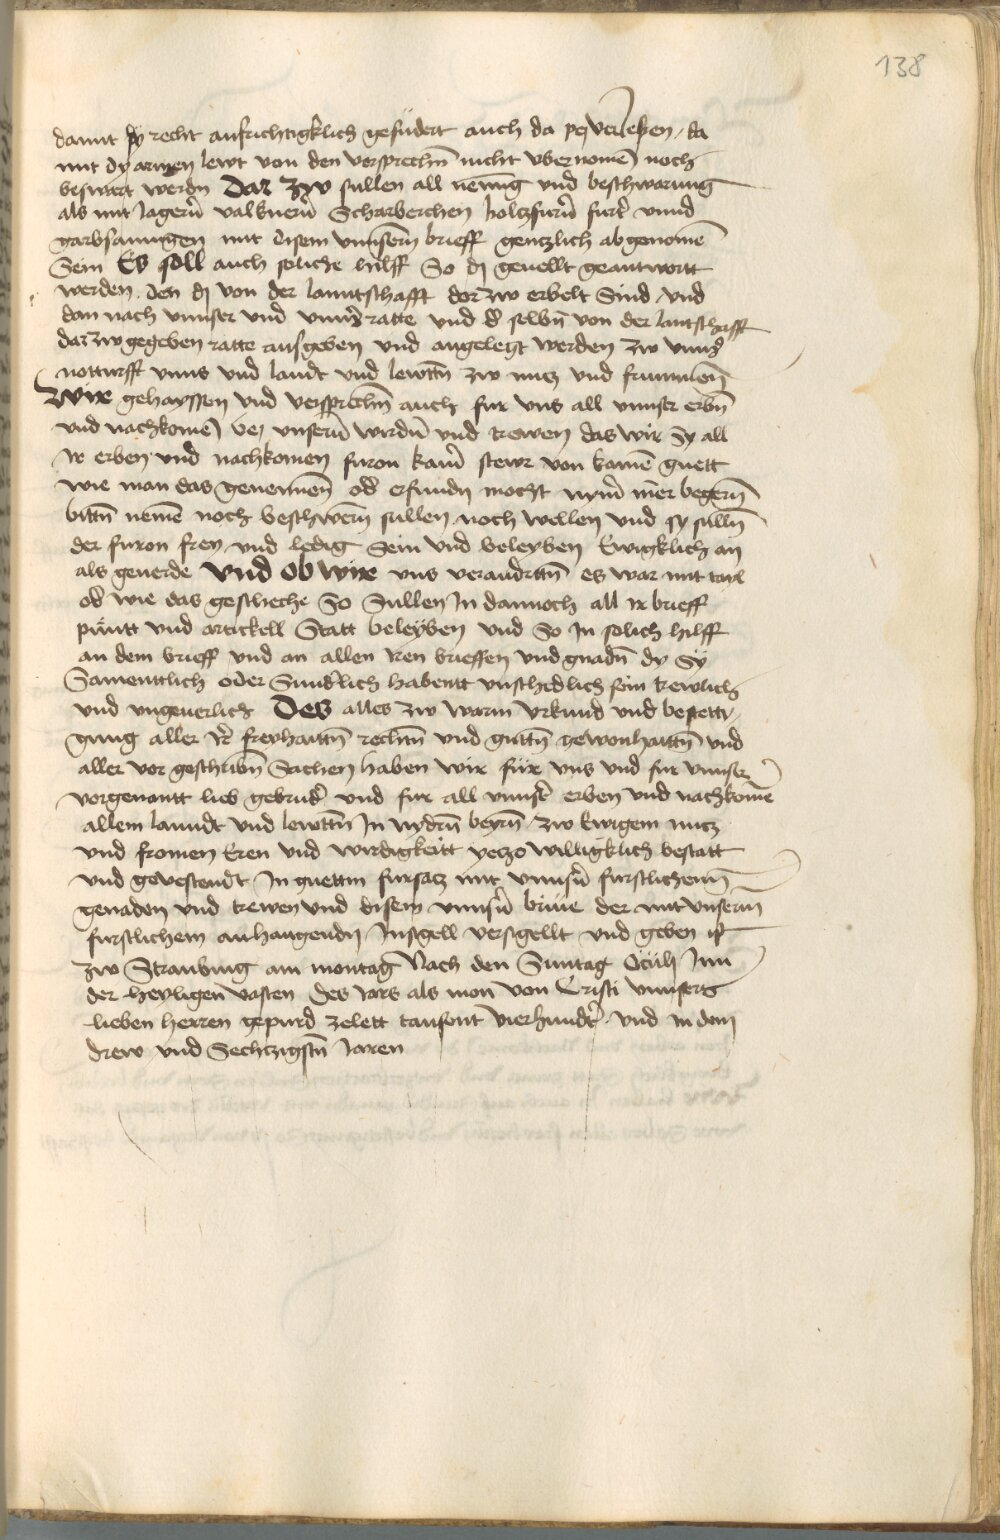 138
damit sy recht aufrichtigklich gefudert auch da
mit dy armen lewt von den vorsprechen nicht vbernomē noch
beswärt werdn Dar zw sullen all newūg vnd beschwarung
als mit Jagerñ valknerñ Scharberchen holczfurñ furē vnnd
garbsamūgen mit disem vnnserm brieff genczlich abgenomē
Sein Es soll auch soliche hilff So dj geuellt geantwortt
werden den dj von der lanntschafft dorzw erbelt Sind vnd
dan nach vnnser vnd vnnsʼ ratte vnd dʼ selbn̄ von der lantschafft
darzw gegeben ratte ausgeben vnd angelegt werden zw vnnsʼ
notturfft vnns vnd landt vnd lewttn̄ zw nucz vnd frummen
Wir gehayssen vnd versprechn̄ auch fur vns all vnnser erbn̄
vnd nachkomē bej vnserñ wirdñ vnd trewen das wir Sy all
Ir erben vnd nachkomen furon kain̄ stewr von kainē guett
wie man das genennen odʼ erfindn mocht nym̄ mer begern̄
bittn̄ nemē noch beschwern̄ sullen noch wellen vnd sy sulln̄
der furon frey vnd ledig Sein vnd beleyben Ewigklich an
als geuerde Vnd ob wir vns verandrttn̄ es war mit tayl
odʼ wie das geschehe So Sullen In dannoch all Ir brieff
pūntt vnd artickell Statt beleyben vnd So In solich hilff
an dem brieff vnd an allen Iren brieffen vnd gnadn̄ dy Sÿ
Samenttlich oder Sunderlich habentt vnschedlich sein trewlich
vnd vngeuerlich Des alles zw warm Vrkund vnd bestetty
gung aller Irʼ freyhaittn̄ rechtn̄ vnd guttn̄ gewonhaittn̄ vnd
aller vor geschribn̄ Sachen haben wir für vns vnd fur vnnser
vorgenantt lieb gebrudʼ vnd fur all vnnser erben vnd nachkomē
allem lanndt vnd lewttn̄ In nydern̄ beyrn̄ zw Ewigem nucz
vnd fromen Eren vnd wirdigkeitt yeczo willigklich bestatt
vnd gevestendt In guettm fursacz mit vnnsern̄ furstlichenn
genaden vnd trewen vnd disem vnnsern̄ briue der mit vnserm
furstlichem anhangendn Insigell versigellt vnd geben ist
zw Straubing am montag Nach den Suntag Oculj Inn
der heyligen vasten Des Jars als mon von Cristi vnnsers
lieben herren gepurd zelett tausent vierhundert vnd in dem
drew vnd Sechczigstn̄ Jaren